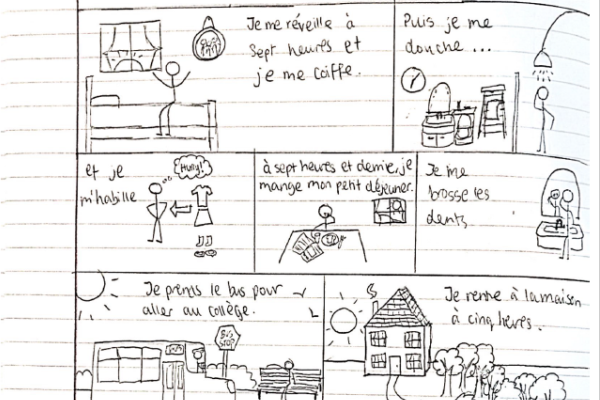 Je me réveille à
sept heures et
je me coiffe.
Puis je me
douche ...
et je
m'habille
Hurry!
à sept heures et demie, je
mange mon petit déjeuner.
Je me
brosse les
dents
Je prends le bus pour
aller au collège.
BUS
STOP
Je rentre à la maison
à cinq heures.